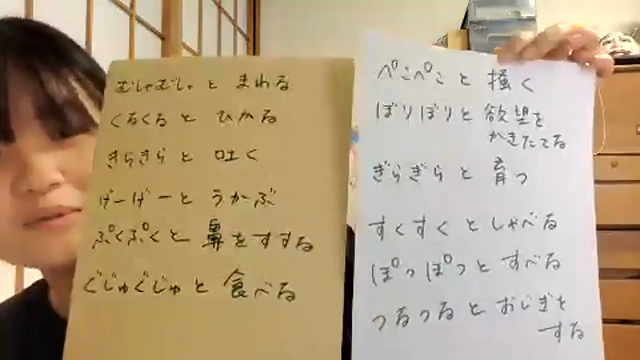 むしゃむしゃと まわる
くるくると ひかる
きらきらと 吐く
げーげーと うかぶ
ぷくぷくと 鼻をすする
ぐじゅぐじゅと 食べる
ぺこぺこと 掻く
ぼりぼりと 欲望を
かきたてる
ぎらぎらと 育つ
すくすくと しゃべる
ぽつぽつと すべる
つるつると おじぎを
する